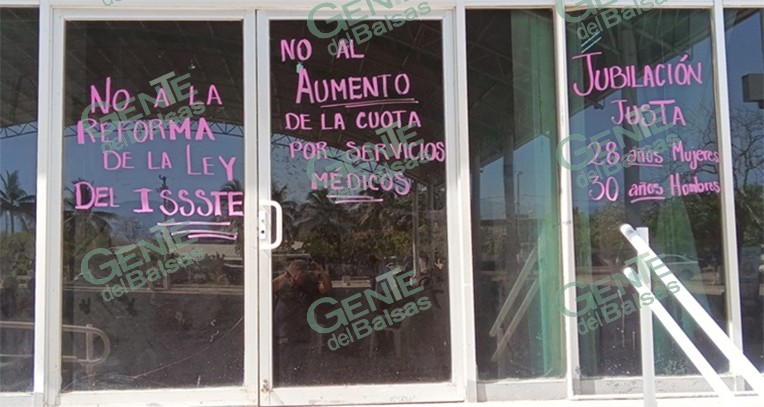 NO A LA
REFORMA
DE LA LEY
DEL ISSSTE
NO AL
AUMENTO
DE LA CUOTA
POR SERVICIOS
MÉDICOS
JUBILACIÓN
JUSTA
28 años Mujeres
30 años Hombres
GENTE
del Balsas
GENTE
del Balsas
GENTE
del Balsas
GENTE
del Balsas
GENTE
del Balsas
GENTE
del Balsas
GENTE
del Balsas